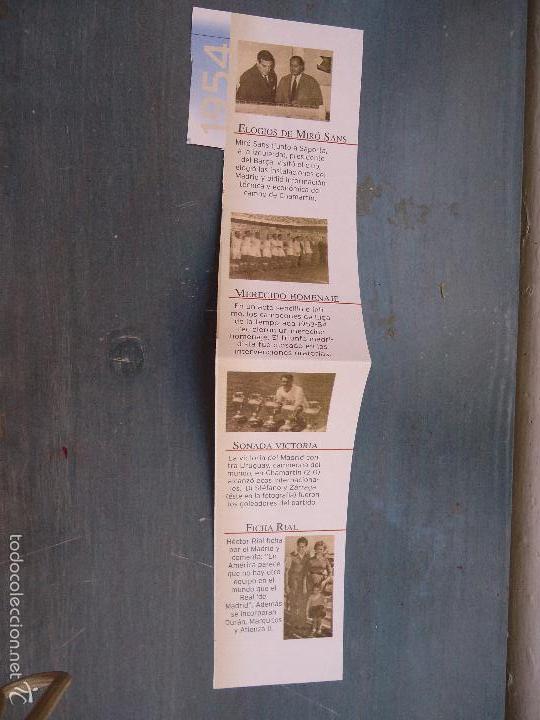 1954
ELOGIOS DE MIRÓ SANS
Miró Sans (junto a Saporta,
a la izquierda), presidente
del Barça, visitó el club,
elogió las instalaciones del
Madrid y pidió información
técnica y económica del
campo de Chamartín.
MERECIDO HOMENAJE
En un acto sencillo e ínti-
mo, los campeones de Liga
de la temporada 1953-54
recibieron un merecido
homenaje. El triunfo madri-
dista fue glosado en las
intervenciones oratorias.
SONADA VICTORIA
La victoria del Madrid con-
tra Uruguay, campeón del
mundo, en Chamartín (2-0)
alcanzó ecos internaciona-
les. Di Stéfano y Zárraga
(éste en la fotografía) fueron
los goleadores del partido.
FICHA RIAL
Héctor Rial ficha
por el Madrid y
comenta: "En
América parece
que no hay otro
equipo en el
mundo que el
Real 'de
Madrid". Además
se incorporan
Durán, Marquitos
y Atienza II.
todocoleccion.net